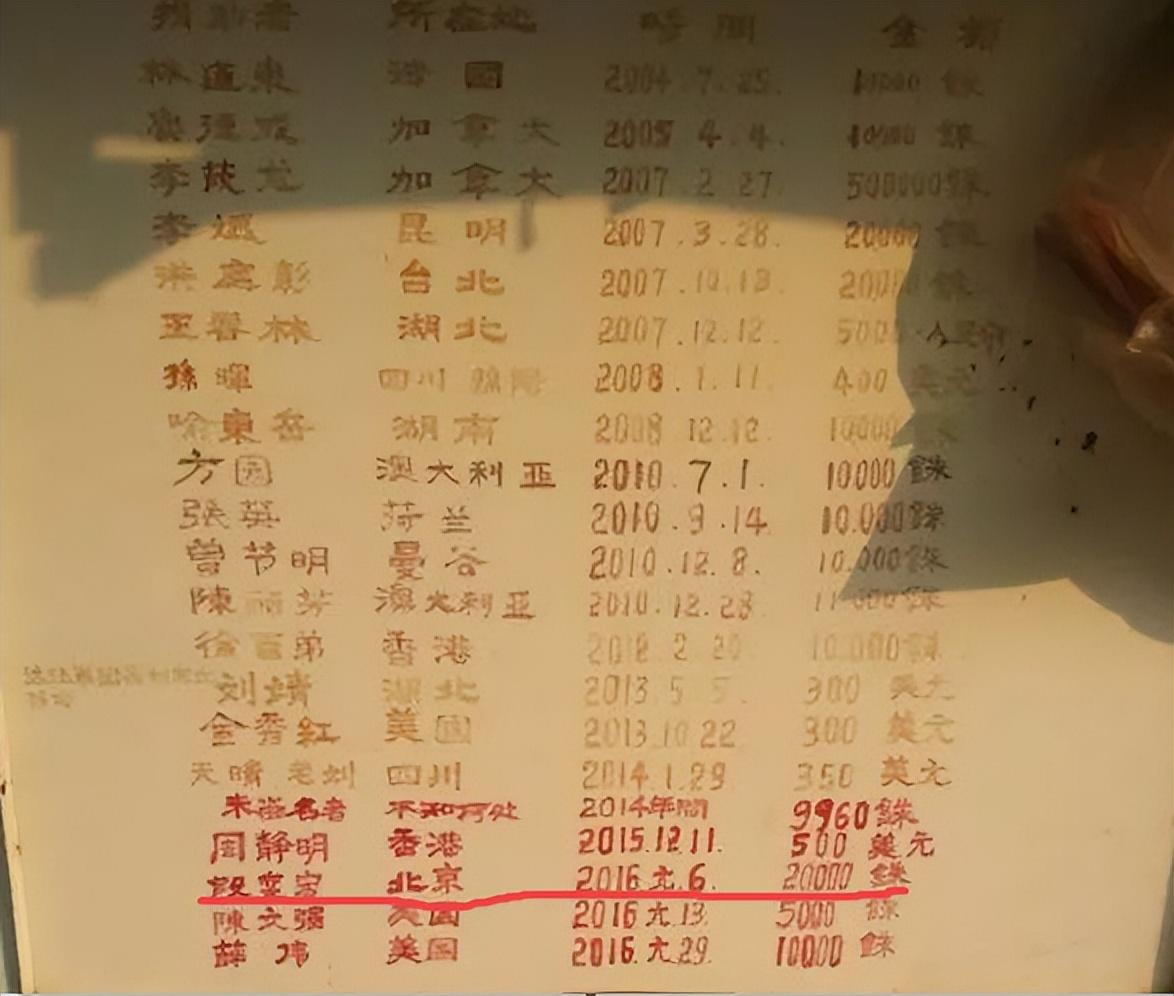 捐助者 所在地 時間 金額
林 東 港國 2004.7.25. 10000 銖
加拿大 2005.4.4. 10000 銖
李 龙 加拿大 2007.2.27. 500000銖
李 昆明 2007.3.28. 20000 銖
洪 彰 台北 2007.10.13. 20000 銖
王春林 湖北 2007.12.12. 5000 人民币
孫暉 四川 2008.1.11. 400 美元
喻東岳 湖南 2008.12.12. 10000 銖
方园 澳大利亚 2010.7.1. 10000 銖
張英 荷兰 2010.9.14. 10.000銖
曾节明 曼谷 2010.12.8. 10.000銖
陳丽芳 澳大利亚 2010.12.28. 11.000銖
徐百弟 香港 2.20. 10.000銖
刘靖 湖北 2013.5.5. 300 美元
金秀紅 美国 2013.10.22 300 美元
天晴老刘 四川 2014.1.29. 350 美元
未湓名者 不知何处 2014年間 9960銖
周静明 香港 2015.12.11. 500 美元
北京 2016.六.6. 20000 銖
陳文强 美国 2016.六.13. 5000 銖
薛伟 美国 2016.六.29. 10000 銖